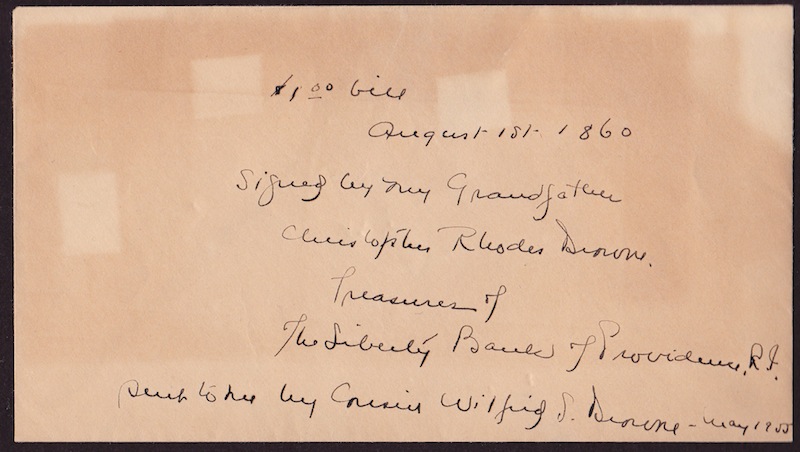 $1.00 bill
August 1st 1860
Signed by my Grandfather
Christopher Rhodes Drowne.
Treasurer of
The Liberty Bank of Providence, R.I.
sent to me by Cousin Wilfrid S. Drowne - May 1955